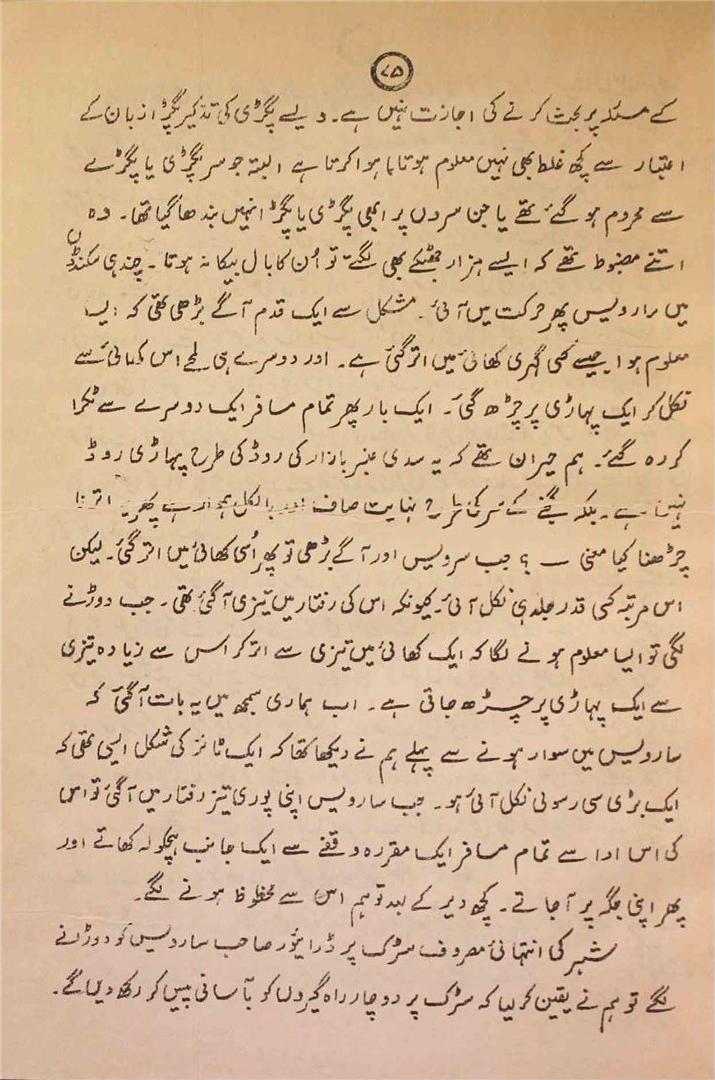 ۷۵
کے مسئلہ پر بحث کرنے کی اجازت نہیں ہے۔ ویسے پگڑی کی تذکیر پگڑا زبان کے
اعتبار سے کچھ غلط بھی نہیں معلوم ہوتا ہوا کرتا ہے البتہ جو سر پگڑی یا پگڑے
سے محروم ہو گئے تھے یا جن سروں پر ابھی پگڑی یا پگڑا نہیں بندھا گیا تھا۔ وہ
اتنے مضبوط تھے کہ ایسے ہزار جھٹکے بھی لگتے تو اُن کا بال بیکا نہ ہوتا۔ چند ہی سکنڈوں
میں سارویس پھر حرکت میں آئی۔ مشکل سے ایک قدم آگے بڑھی تھی کہ ایسا
معلوم ہوا جیسے کسی گہری کھائی میں اتر گئی ہے۔ اور دوسرے ہی لمحے اس کھائی سے
نکل کر ایک پہاڑی پر چڑھ گئی۔ ایک بار پھر تمام مسافر ایک دوسرے سے ٹکرا
کر رہ گئے۔ ہم حیران تھے کہ یہ سدی عنبر بازار کی روڈ کی طرح پہاڑی روڈ
نہیں ہے۔ بلکہ گچے کے سڑک کی طرح نہایت صاف اور بالکل ہموار ہے پھر یہ اترنا
چڑھنا کیا معنی ــ ؟ جب سرویس اور آگے بڑھی تو پھر اُسی کھائی میں اتر گئی۔ لیکن
اس مرتبہ کسی قدر جلد ہی نکل آئی۔ کیونکہ اس کی رفتار میں تیزی آ گئی تھی۔ جب دوڑنے
لگی تو ایسا معلوم ہونے لگا کہ ایک کھائی میں تیزی سے اتر کر اس سے زیادہ تیزی
سے ایک پہاڑی پر چڑھ جاتی ہے۔ اب ہماری سمجھ میں یہ بات آ گئی کہ
سارویس میں سوار ہونے سے پہلے ہم نے دیکھا تھا کہ ایک ٹائر کی شکل ایسی تھی کہ
ایک بڑی سی رسولی نکل آئی ہو۔ جب سارویس اپنی پوری تیز رفتار میں آ گئی تو اس
کی اس ادا سے تمام مسافر ایک مقررہ وقفے سے ایک جانب ہچکولہ کھاتے اور
پھر اپنی جگہ پر آ جاتے۔ کچھ دیر کے بعد تو ہم اس سے محظوظ ہونے لگے۔
شہر کی انتہائی مصروف سڑک پر ڈرائیور صاحب سارویس کو دوڑانے
لگے تو ہم نے یقین کر لیا کہ سڑک پر دو چار راہ گیروں کو بآسانی پیس کر رکھ دیں گے۔